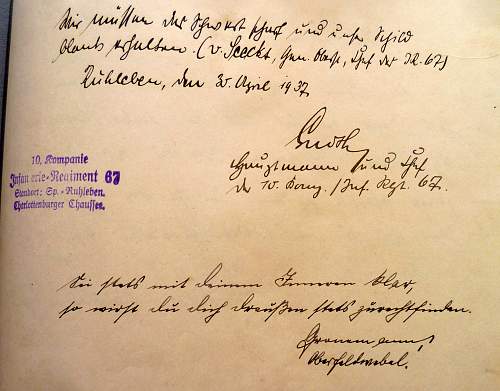 Wir müssen das Schwert scharf und unser Schild
blank erhalten. (v. Seeckt, Gen. Oberst, Chef des IR. 67)
Ruhleben, den 30. April 1937
Hauptmann und Chef
der 10. Komp. / Inf. Rgt. 67.
10. Kompanie
Infanterie-Regiment 67
Standort: Sp.-Ruhleben.
Charlottenburger Chaussee.
Sei stets mit deinem Inneren klar,
so wirst du dich draußen stets zurechtfinden.
Oberfeldwebel.